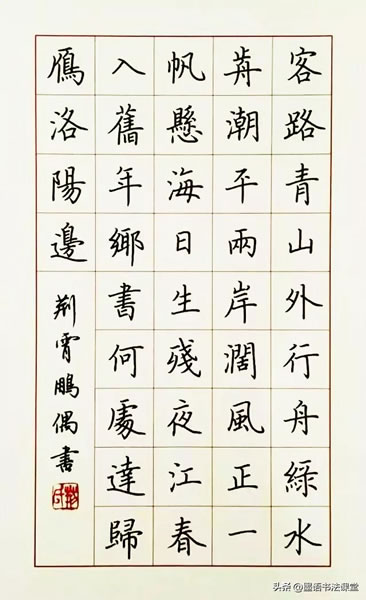 客路青山外行舟綠水
歬潮平兩岸闊風正一
帆懸海日生殘夜江春
入舊年鄉書何處達歸
鴈洛陽邊
荊霄鵬偶書
头条 @墨语书法课堂